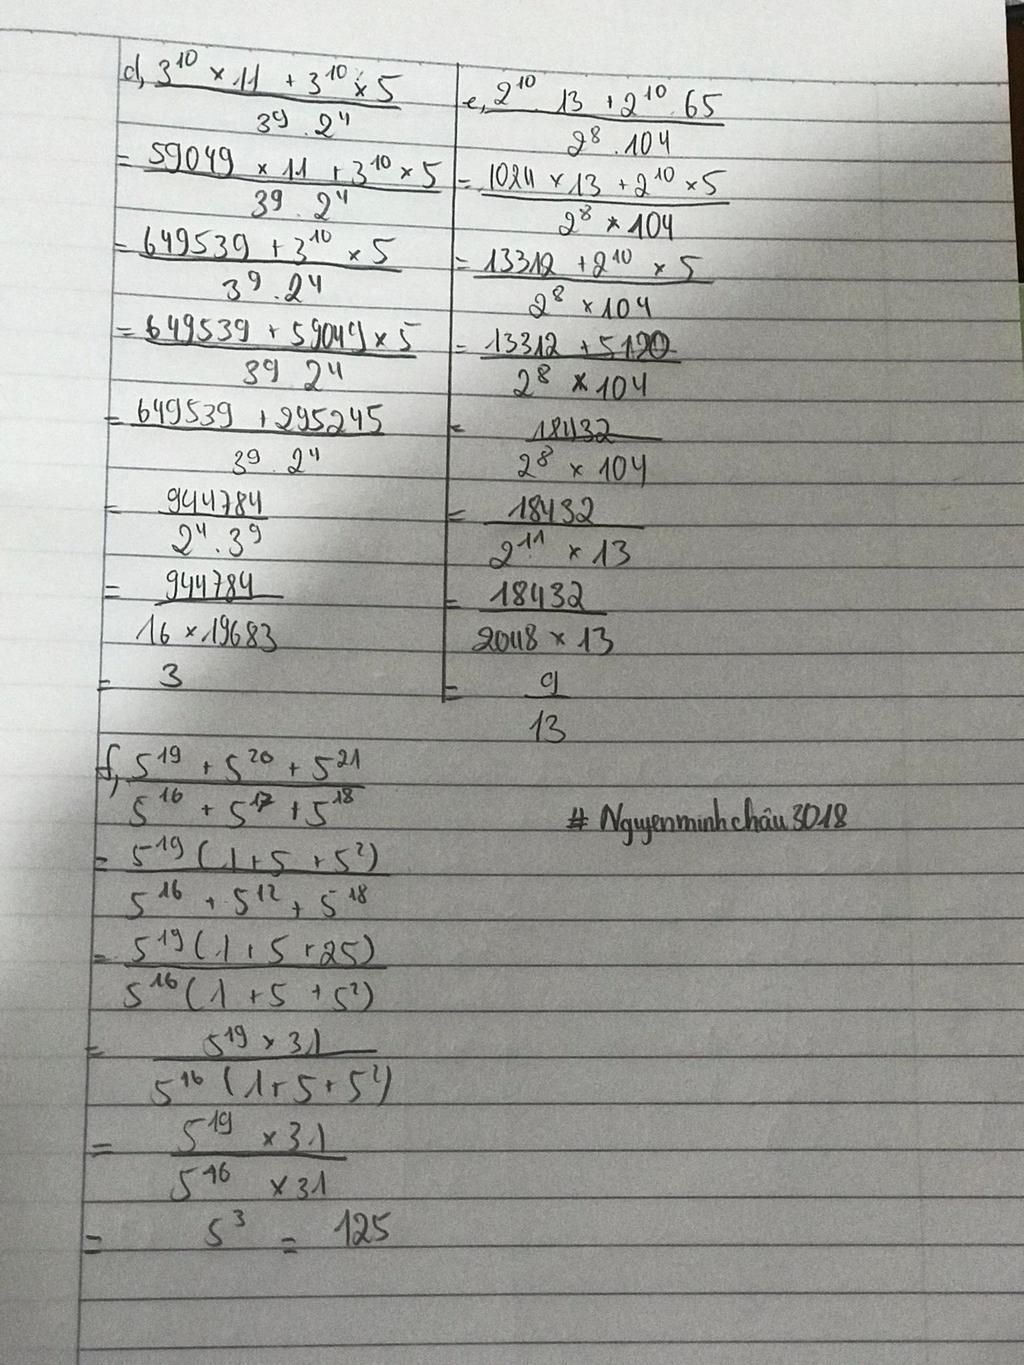 d, 3^10 × 11 + 3^10 × 5
3^9 . 2^4
= 59049 × 11 + 3^10 × 5
3^9 . 2^4
= 649539 + 3^10 × 5
3^9 . 2^4
= 649539 + 59049 × 5
3^9 2^4
= 649539 + 295245
3^9 . 2^4
= 944784
2^4 . 3^9
= 944784
16 × 19683
= 3
e, 2^10 . 13 + 2^10 . 65
2^8 . 104
= 1024 × 13 + 2^10 × 5
2^8 × 104
= 13312 + 2^10 × 5
2^8 × 104
= 13312 + 5120
2^8 × 104
= 18432
2^8 × 104
= 18432
2^11 × 13
= 18432
2048 × 13
= 9
13
f, 5^19 + 5^20 + 5^21
5^16 + 5^17 + 5^18
= 5^19 (1 + 5 + 5^2)
5^16 + 5^12 + 5^18
= 5^19 (1 + 5 + 25)
5^16 (1 + 5 + 5^2)
= 5^19 × 31
5^16 (1 + 5 + 5^2)
= 5^19 × 31
5^16 × 31
= 5^3 = 125
# Nguyenminhchâu3018